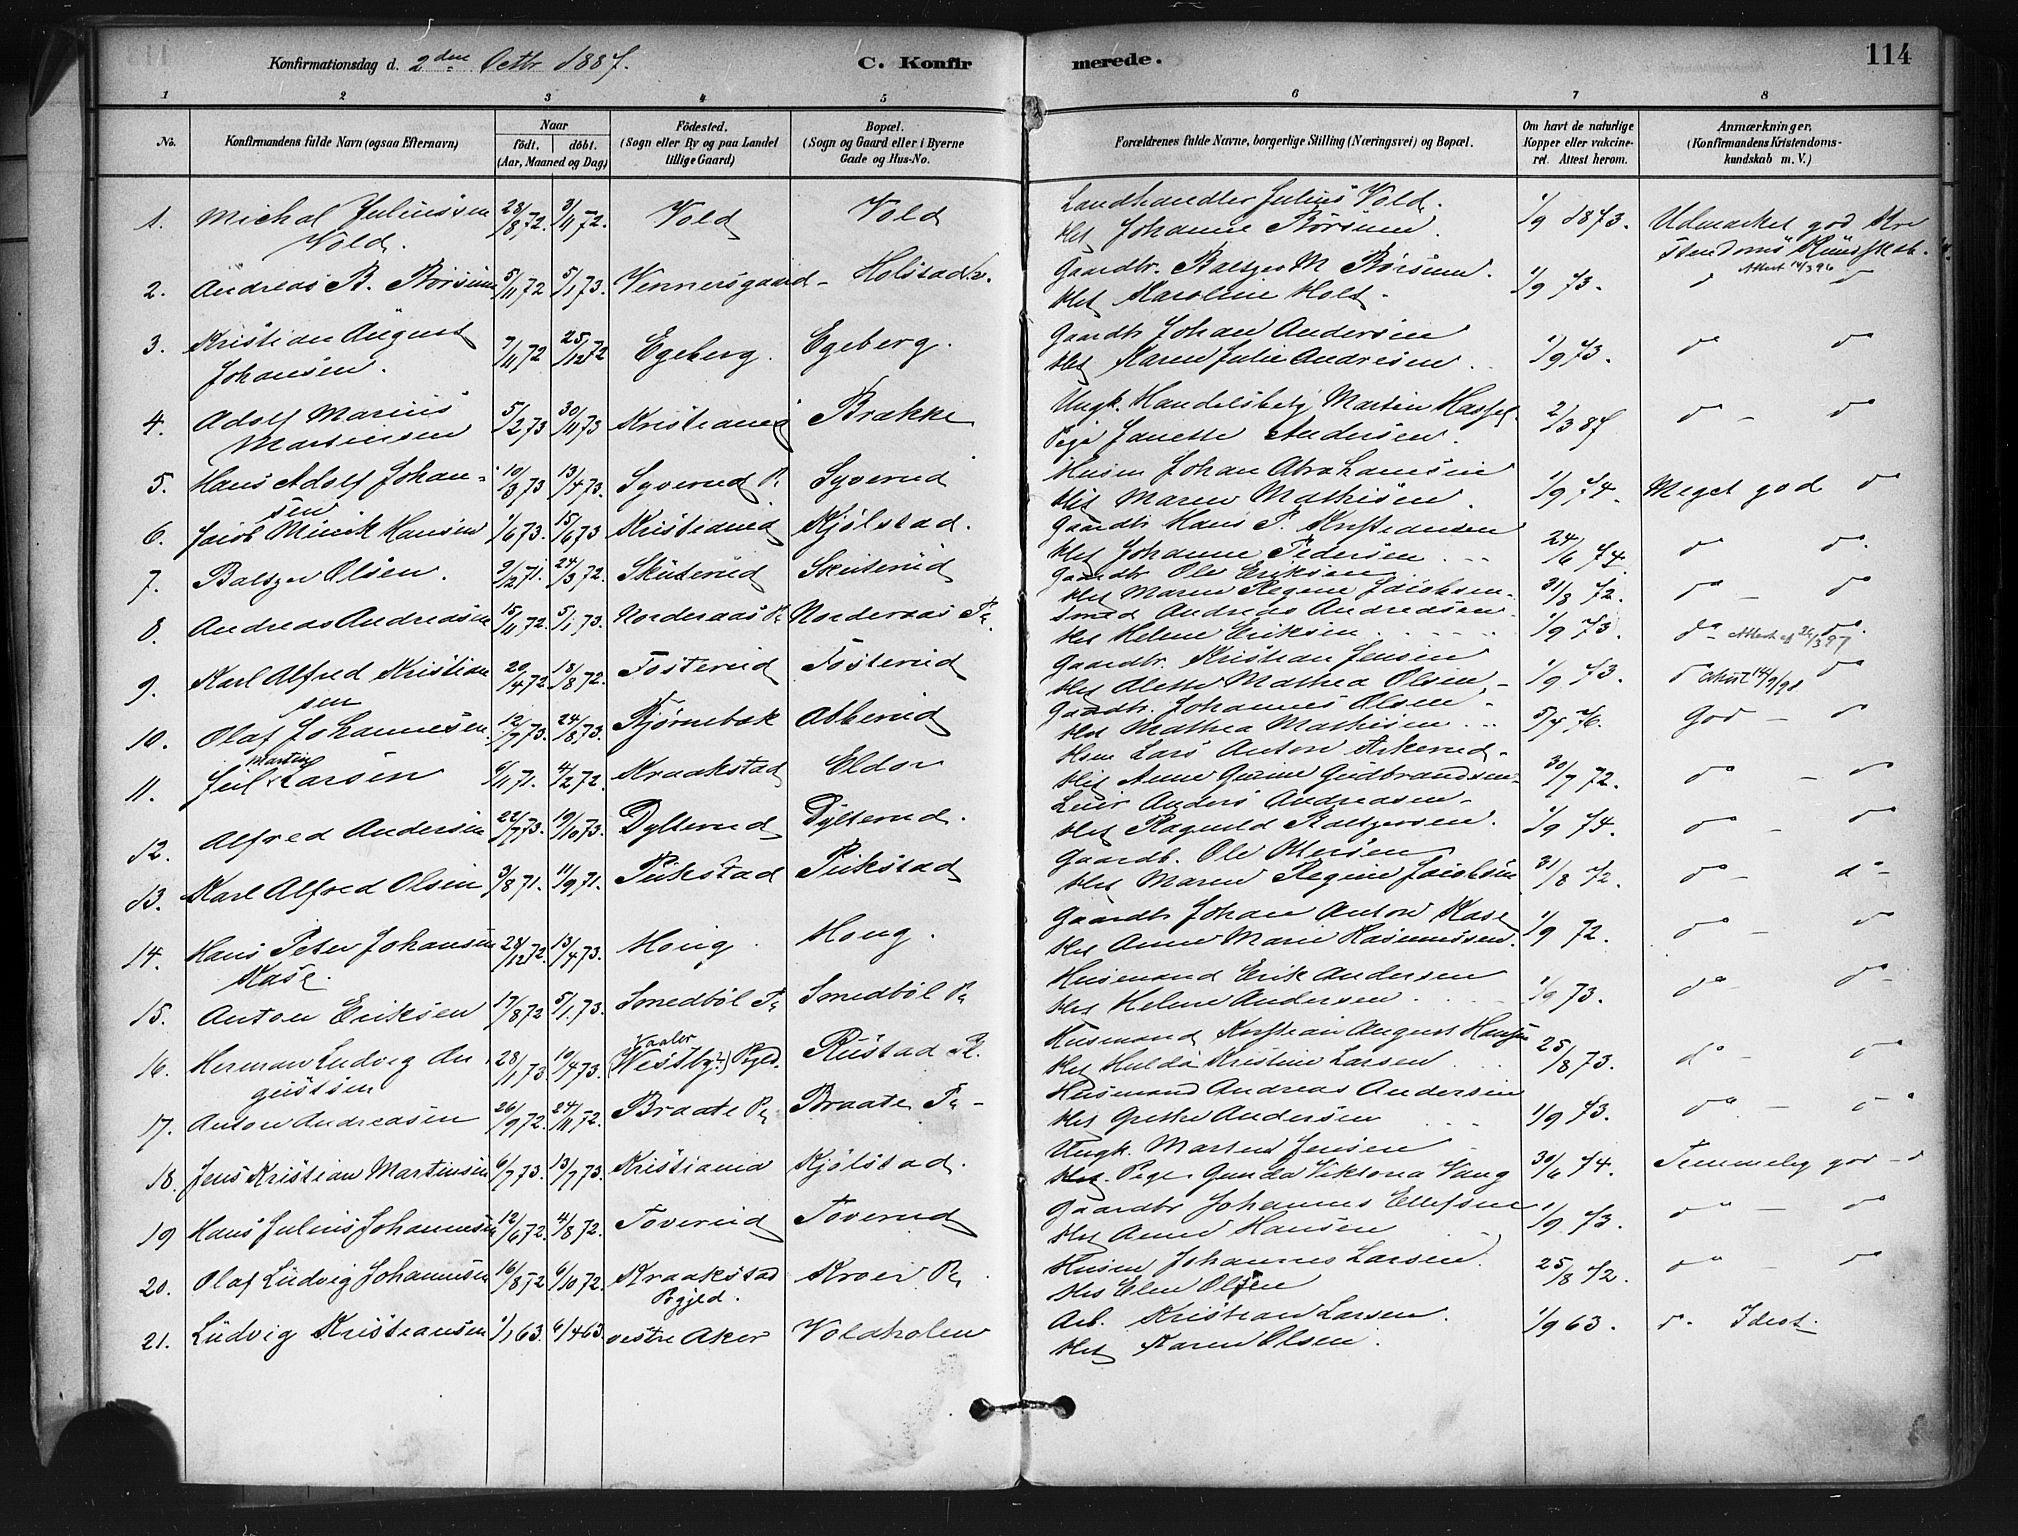 Konfirmationsdag d. 2den Octbr 1887.
C. Konfirmerede.
114
1 2 3 4 5 6 7 8
No.
Konfirmandens fulde Navn (ogsaa Efternavn)
Naar
födt. döbt.
(Aar, Maaned og Dag)
Födested.
(Sogn eller By og paa Landet tillige Gaard)
Bopæl.
(Sogn og Gaard eller i Byerne Gade og Hus-No.
Forældrenes fulde Navne, borgerlige Stilling (Næringsvei) og Bopæl.
Om havt de naturlige Kopper eller vakcineret. Attest herom.
Anmærkninger.
(Konfirmandens Kristendomskundskab m. V.)
1. Michal Juliussen Vold. 28/8 72. 3/11 72. Vold Vold Landhandler Julius Vold. Hst Johanne Börsum 1/9 1873. Udmærket god Kristendoms Kundskab.
2. Andreas B. Börsum 5/11 72 5/1 73. Vennersgaard Holstad Gaardbr. Baltzer M Börsum. Hst Karoline Holt. 1/9 73. do Attest 14/3 96 do
3. Kristian August Johansen. 7/11 72 25/12 72 Egeberg. Egeberg. Gaardb Johan Andersen Hst Karen Julie Andresen. 1/9 73. do do
4. Adolf Marius Martinsen 5/2 73 30/11 73 Kristiania Brække Ungk. Handelsbetj Martin Hassel Pige Janette Andersen. 2/3 87 do - do
5. Hans Adolf Johansen 10/3 73 13/4 73. Syverud P. Syverud Husm Johan Abrahamsen Hst Maren Mathisen. 1/9 74. Meget god do
6. Jacob Minik Hansen 1/6 73. 15/6 73 Kristiania Kjölstad. Gaardb Hans P. Kristiansen Hst Johanne Pedersen 24/6 74. do do.
7. Baltzer Olsen. 9/12 71. 24/3 72. Skuterud Skuterud Gaardbr Ole Eriksen Hst Maren Regine Jacobsen 31/8 72. do - do
8. Andreas Andreasen 15/11 72. 5/1 73. Norderaas P. Norderaas P. Smed Andreas Andreassen Hst Helene Eriksen 1/9 73. do Attest af 26/3 97 do.
9. Karl Alfred Kristiansen 20/4 72 18/8 72. Fosterud Fosterud Gaardbr. Kristian Jensen Hst Alette Mathea Olsen 1/9 73. do attest 14/9/98 do
10. Olaf Johannesen 12/7 73. 24/8 73. Bjørnebæk Abberud Gaardb. Johannes Olsen Hst Mathea Mathisen 5/4 76. God - do
11. Juil Martin Larsen 6/11 71. 4/2 72. Kraakstad Eldor Hsm Lars Anton Askerud Hst Anne Gurine Gudbrandsen 30/7 72. do - do
12. Alfred Andersen 22/7 73. 19/10 73. Dylterud Dylterud. Leier Anders Andreasen Hst Ragnild Baltzersen. 1/9 74. do - do
13. Karl Alfred Olsen 3/8 71. 11/9 71. Pukstad Pukstad Gaardb. Ole Ottersen Hst Maren Regine Jacobsen 31/8 72. do - do
14. Hans Peter Johansen Kase. 28/12 72. 13/4 73. Houg. Houg. Gaardb Johan Anton Kase Hst Anne Marie Rasmussen. 1/9 72. do - do
15. Anton Eriksen 17/8 72 5/1 73. Smedböl P. Smedböl P. Husmand Erik Andersen Hst Helene Andersen. 1/9 73. do - do
16. Herman Ludvig Augustsen 28/1 73 10/4 73. Vaaler (Westby?) Pgjld. Rustad Pl. Husmand Kristian August Hansen Hst Hulda Kristine Larsen 25/8 73. do - do
17. Anton Andreasen 26/9 72. 24/11 72. Braate P. Braate P. - Husmand Andreas Andersen Hst Grethe Andersen 1/9 73. do - do
18. Jens Kristian Martinsen 6/7 73. 13/7 73. Kristiania Kjölstad. Ungk. Martin Jensen Pige Gunda Viktoria Vang 30/6 74. Temmelig god - do
19 Hans Julius Johannesen 12/6 72. 4/8 72. Toverud Toverud Gaardbr Johannes Ellefsen Hst Anne Hansen 1/9 73. do - do
20. Olaf Ludvig Johannesen 16/8 72 6/10 72. Kraakstad Pgjeld. Kroer P. Husm Johannes Larsen. Hst Elen Olsen 25/8 72. do - do
21. Ludvig Kristiansen 1/1 63. 6/4 63. vestre Aker Voldholen Arb. Kristian Larsen. Hst Karen Olsen. 1/9 63. do. Idiot.